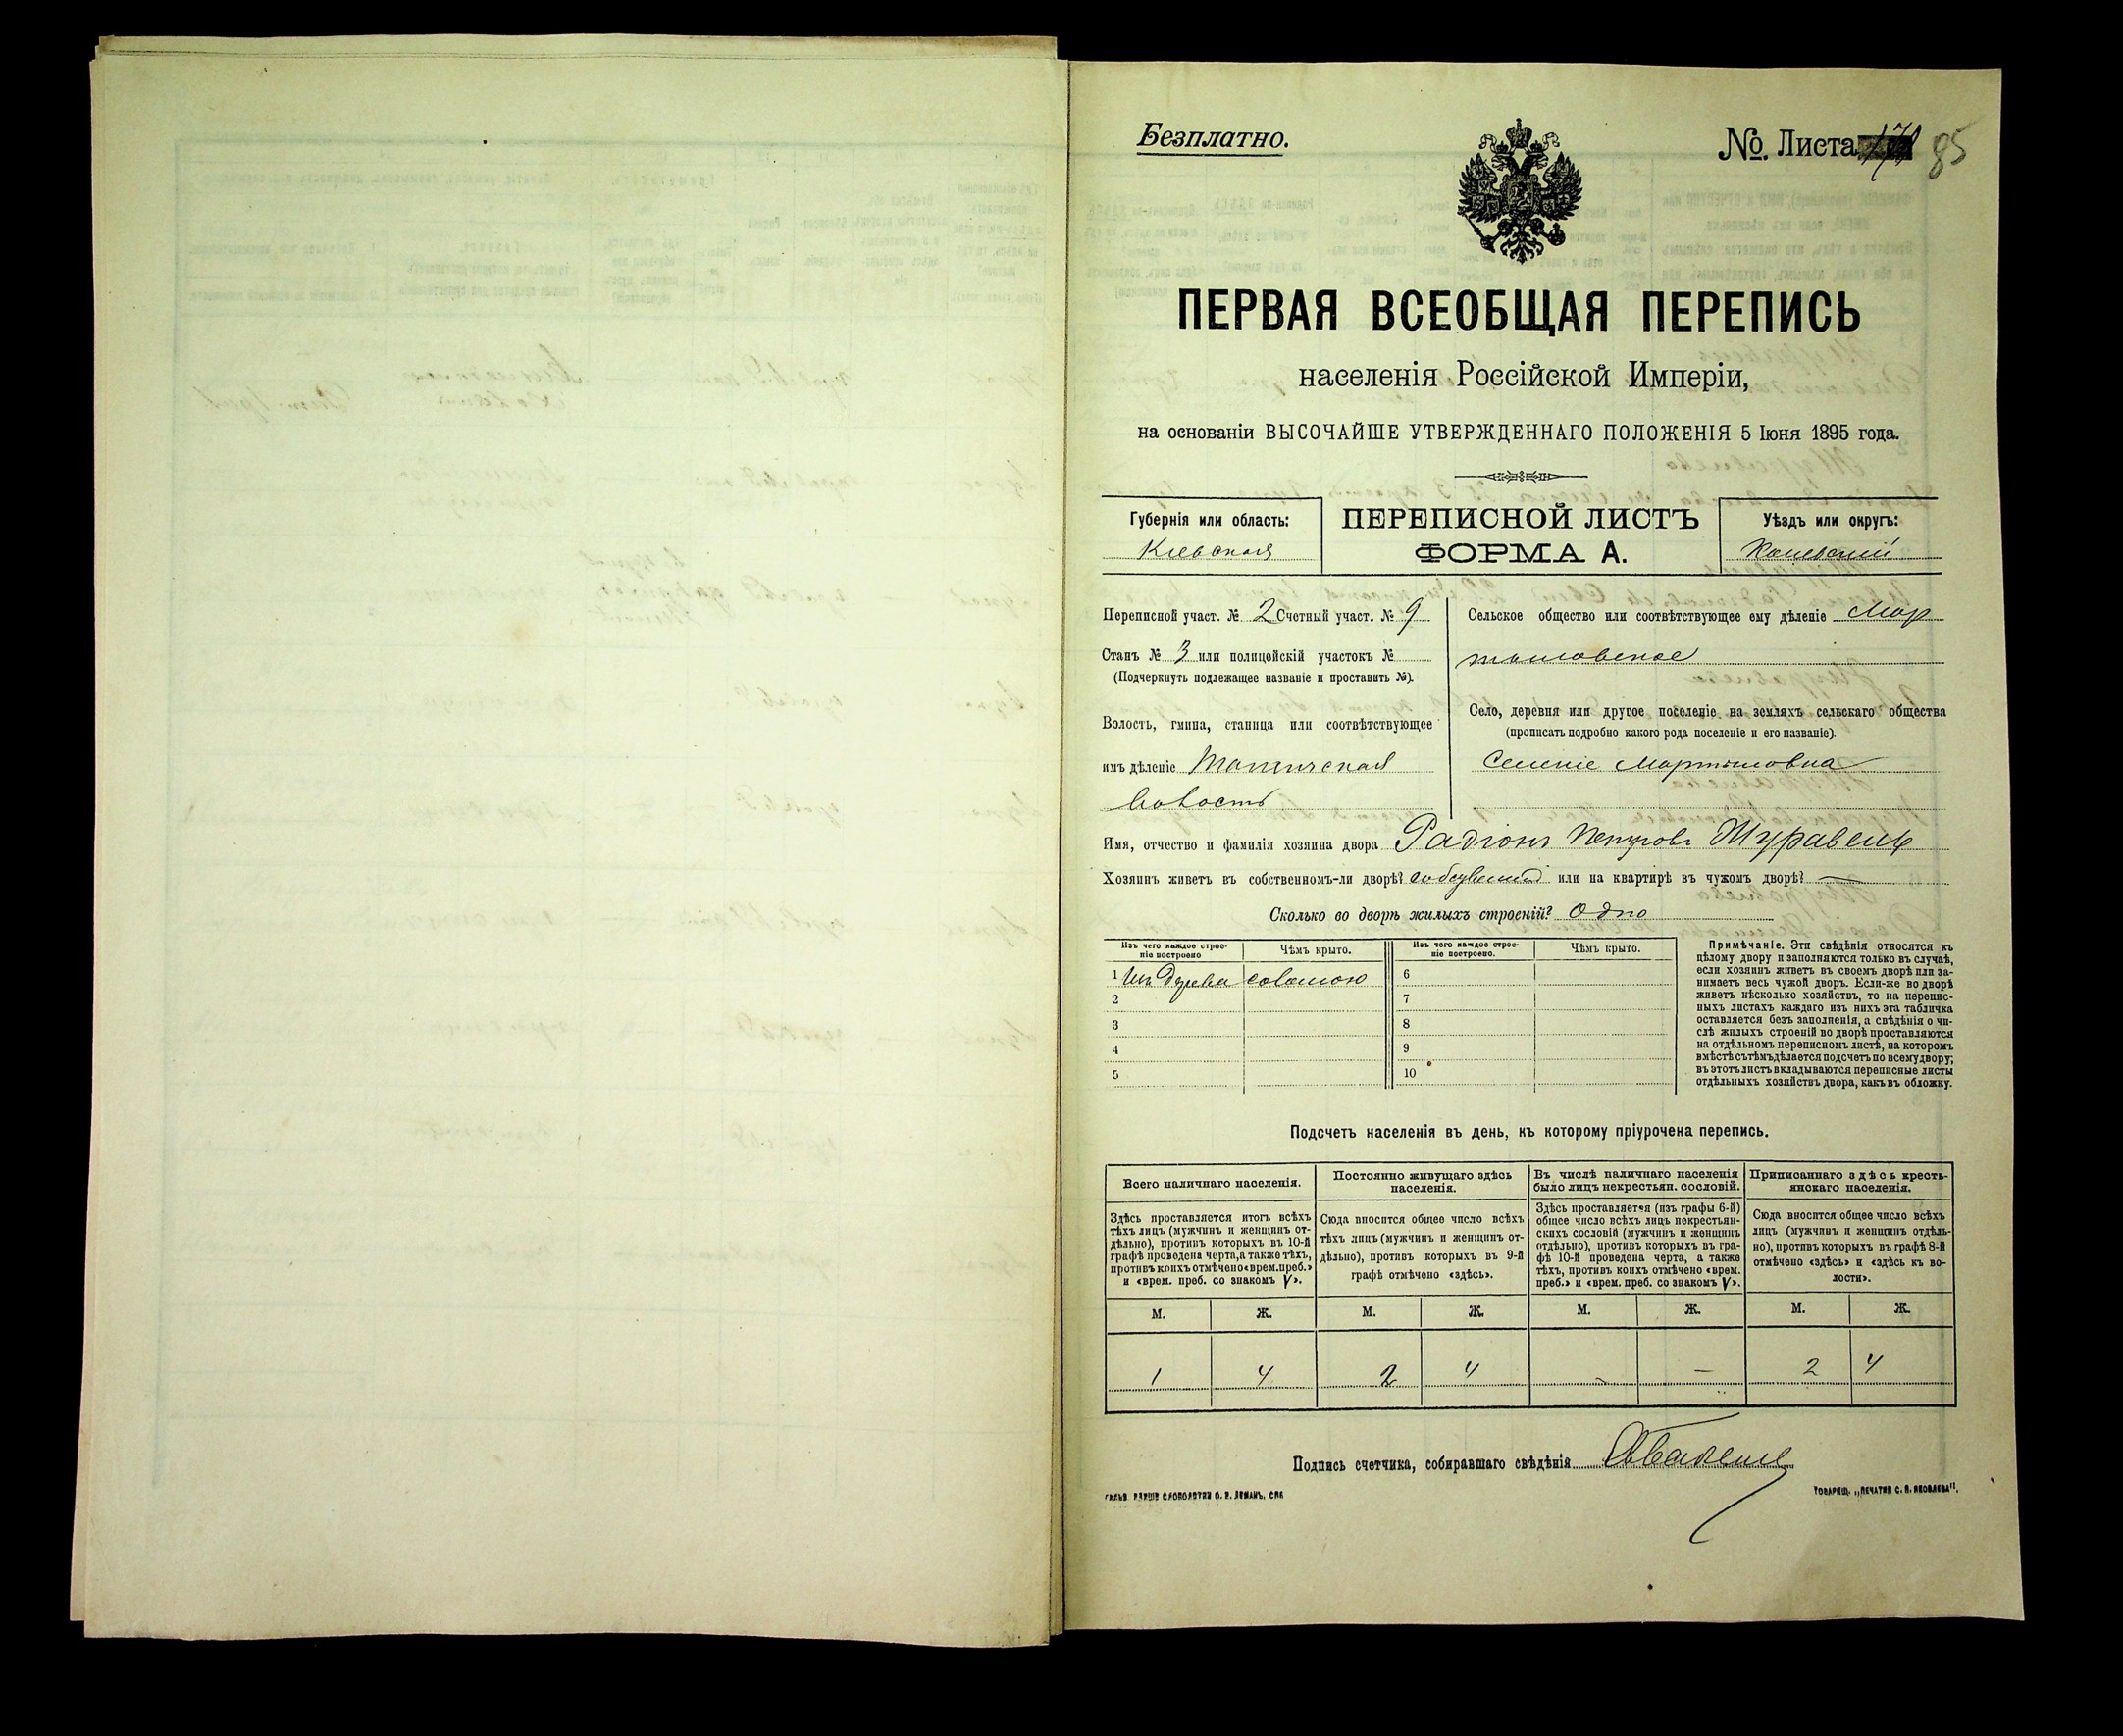 Безплатно.
№. Листа 85
ПЕРВАЯ ВСЕОБЩАЯ ПЕРЕПИСЬ
населенія Россійской Имперіи,
на основаніи ВЫСОЧАЙШЕ УТВЕРЖДЕННАГО ПОЛОЖЕНІЯ 5 Іюня 1895 года.
Губернія или область:
Кіевская
ПЕРЕПИСНОЙ ЛИСТЪ
ФОРМА А.
Уѣздъ или округъ:
Каневскій
Переписной участ. № 2 Счетный участ. № 9
Станъ № 3 или полицейскій участокъ №
(Подчеркнуть подлежащее названіе и проставить №).
Волость, гмина, станица или соотвѣтствующее
имъ дѣленіе
волость
Сельское общество или соотвѣтствующее ему дѣленіе Мар
тыновское
Село, деревня или другое поселеніе на земляхъ сельскаго общества
(прописать подробно какого рода поселеніе и его названіе).
Селеніе Мартыновка
Имя, отчество и фамилія хозяина двора Радіонъ Петровъ Журавель
Хозяинъ живетъ въ собственномъ-ли дворѣ? или на квартирѣ въ чужомъ дворѣ? —
Сколько во дворѣ жилыхъ строеній? Одно
Изъ чего каждое строе-
ніе построено
Чѣмъ крыто.
1 Изъ дерева соломою
2
3
4
5
Изъ чего каждое строе-
ніе построено.
Чѣмъ крыто.
6
7
8
9
10
Примѣчаніе. Эти свѣдѣнія относятся къ
цѣлому двору и заполняются только въ случаѣ,
если хозяинъ живетъ въ своемъ дворѣ или за-
нимаетъ весь чужой дворъ. Если-же во дворѣ
живетъ нѣсколько хозяйствъ, то на перепис-
ныхъ листахъ каждаго изъ нихъ эта табличка
оставляется безъ заполненія, а свѣдѣнія о чи-
слѣ жилыхъ строеній во дворѣ проставляются
на отдѣльномъ переписномъ листѣ, на которомъ
вмѣстѣ съ тѣмъ дѣлается подсчетъ по всему двору;
въ этотъ листъ вкладываются переписные листы
отдѣльныхъ хозяйствъ двора, какъ въ обложку.
Подсчетъ населенія въ день, къ которому пріурочена перепись.
Всего наличнаго населенія.
Здѣсь проставляется итогъ всѣхъ
тѣхъ лицъ (мужчинъ и женщинъ от-
дѣльно), противъ которыхъ въ 10-й
графѣ проведена черта, а также тѣхъ,
противъ коихъ отмѣчено «врем. преб.»
и «врем. преб. со знакомъ V».
Постоянно живущаго здѣсь
населенія.
Сюда вносится общее число всѣхъ
тѣхъ лицъ (мужчинъ и женщинъ от-
дѣльно), противъ которыхъ въ 9-й
графѣ отмѣчено «здѣсь».
Въ числѣ наличнаго населенія
было лицъ некрестьян. сословій.
Здѣсь проставляется (изъ графы 6-й)
общее число всѣхъ лицъ некрестьян-
скихъ сословій (мужчинъ и женщинъ
отдѣльно), противъ которыхъ въ гра-
фѣ 10-й проведена черта, а также
тѣхъ, противъ коихъ отмѣчено «врем.
преб.» и «врем. преб. со знакомъ V».
Приписаннаго здѣсь кресть-
янскаго населенія.
Сюда вносится общее число всѣхъ
лицъ (мужчинъ и женщинъ отдѣль-
но), противъ которыхъ въ графѣ 8-й
отмѣчено «здѣсь» и «здѣсь къ во-
лости».
М. Ж. М. Ж. М. Ж. М. Ж.
1 4 2 4 - — 2 4
Подпись счетчика, собиравшаго свѣдѣнія
Товарищ. „Печатня С. П. Яковлева".